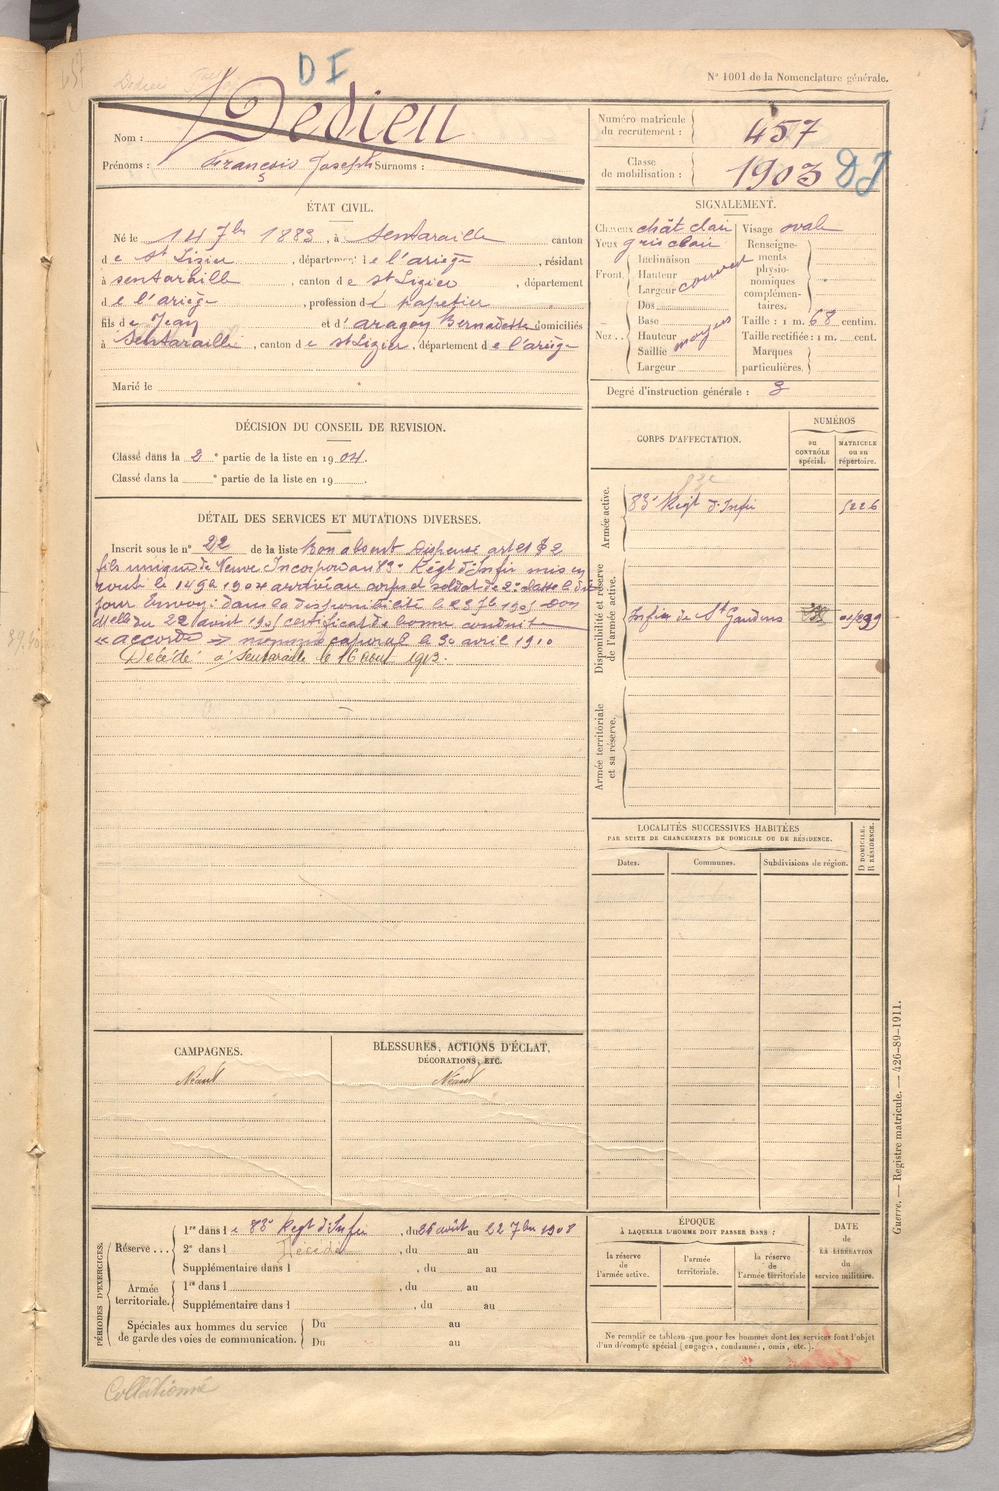 457
D I
Dedieu
N° 1001 de la Nomenclature générale.
Nom : Dedieu
Prénoms : François Joseph Surnoms :
Numéro matricule du recrutement : 457
Classe de mobilisation : 1903 DI
ÉTAT CIVIL.
Né le 14 7bre 1883, à Sentaraille canton
de St Lizier, département de l'ariège, résidant
à sentaraille, canton de St Lizier, département
de l'ariège, profession de papetier
fils de Jean et d'aragon Bernadette domiciliés
à Sentaraille, canton de st Lizier, département de l'ariège
Marié le
SIGNALEMENT.
Cheveux chât clair
Yeux gris clair
Front. Inclinaison
Hauteur couvert
Largeur
Nez.. Dos
Base
Hauteur moyen
Saillie
Largeur
Visage ovale
Renseignements physionomiques complémentaires.
Taille : 1 m. 68 centim.
Taille rectifiée : 1 m. cent.
Marques particulières.
Degré d'instruction générale : 3
DÉCISION DU CONSEIL DE REVISION.
Classé dans la 2e partie de la liste en 1904.
Classé dans la e partie de la liste en 19
DÉTAIL DES SERVICES ET MUTATIONS DIVERSES.
Inscrit sous le n° 22 de la liste Bon absent Dispensé art 21 § 2
fils unique de Veuve. Incorporé au 83e Régt d'Infie mis en
route le 14 9bre 1904 arrivé au corps et soldat de 2e classe le dit
jour Envoyé dans la disponibilité le 23 7bre 1905
du 22 août 1905 certificat de bonne conduite
« accordé » nommé caporal le 30 avril 1910
Décédé à Sentaraille le 16 Août 1913.
CORPS D'AFFECTATION.
NUMÉROS
DU CONTRÔLE spécial.
MATRICULE ou au répertoire.
Armée active.
83e Régt d'Infie 5226
Disponibilité et réserve de l'armée active.
Infie de St Gaudens
Armée territoriale et sa réserve.
LOCALITÉS SUCCESSIVES HABITÉES
PAR SUITE DE CHANGEMENTS DE DOMICILE OU DE RÉSIDENCE.
Dates. Communes. Subdivisions de région. D DOMICILE. R RÉSIDENCE.
CAMPAGNES.
Néant
BLESSURES, ACTIONS D'ÉCLAT,
DÉCORATIONS, ETC.
Néant
PÉRIODES D'EXERCICES.
Réserve... 1re dans le 83e Régt d'Infie, du 26 août au 22 7bre 1908
2e dans l Décédé, du au
Supplémentaire dans l, du au
Armée territoriale. 1re dans l, du au
Supplémentaire dans l, du au
Spéciales aux hommes du service de garde des voies de communication. Du au
Du au
ÉPOQUE
À LAQUELLE L'HOMME DOIT PASSER DANS :
la réserve de l'armée active.
l'armée territoriale.
la réserve de l'armée territoriale
DATE DE LA LIBÉRATION du service militaire.
Ne remplir ce tableau que pour les hommes dont les services font l'objet
d'un décompte spécial (engagés, condamnés, omis, etc.).
Guerre. — Registre matricule. — 426-89-1911.
Collationné